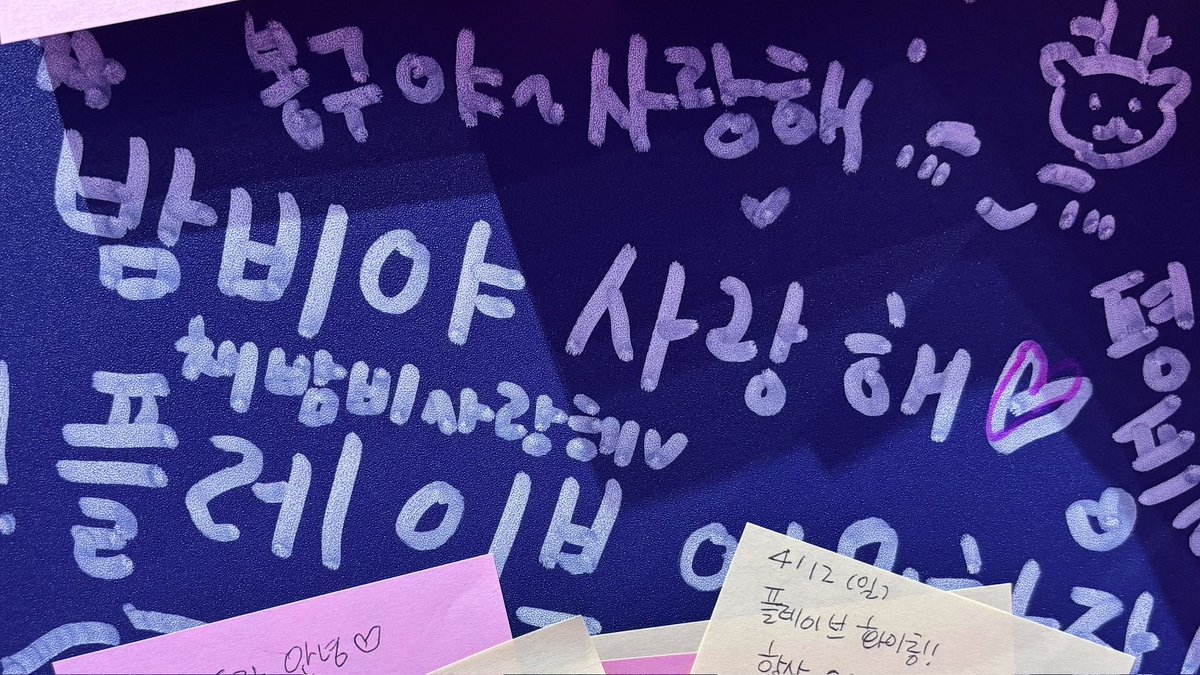 봉구야~사랑해
밤비야 사랑해
채밤비사랑해
플레이브
안녕♡
4/12 (일)
플레이브 화이팅!!
항상